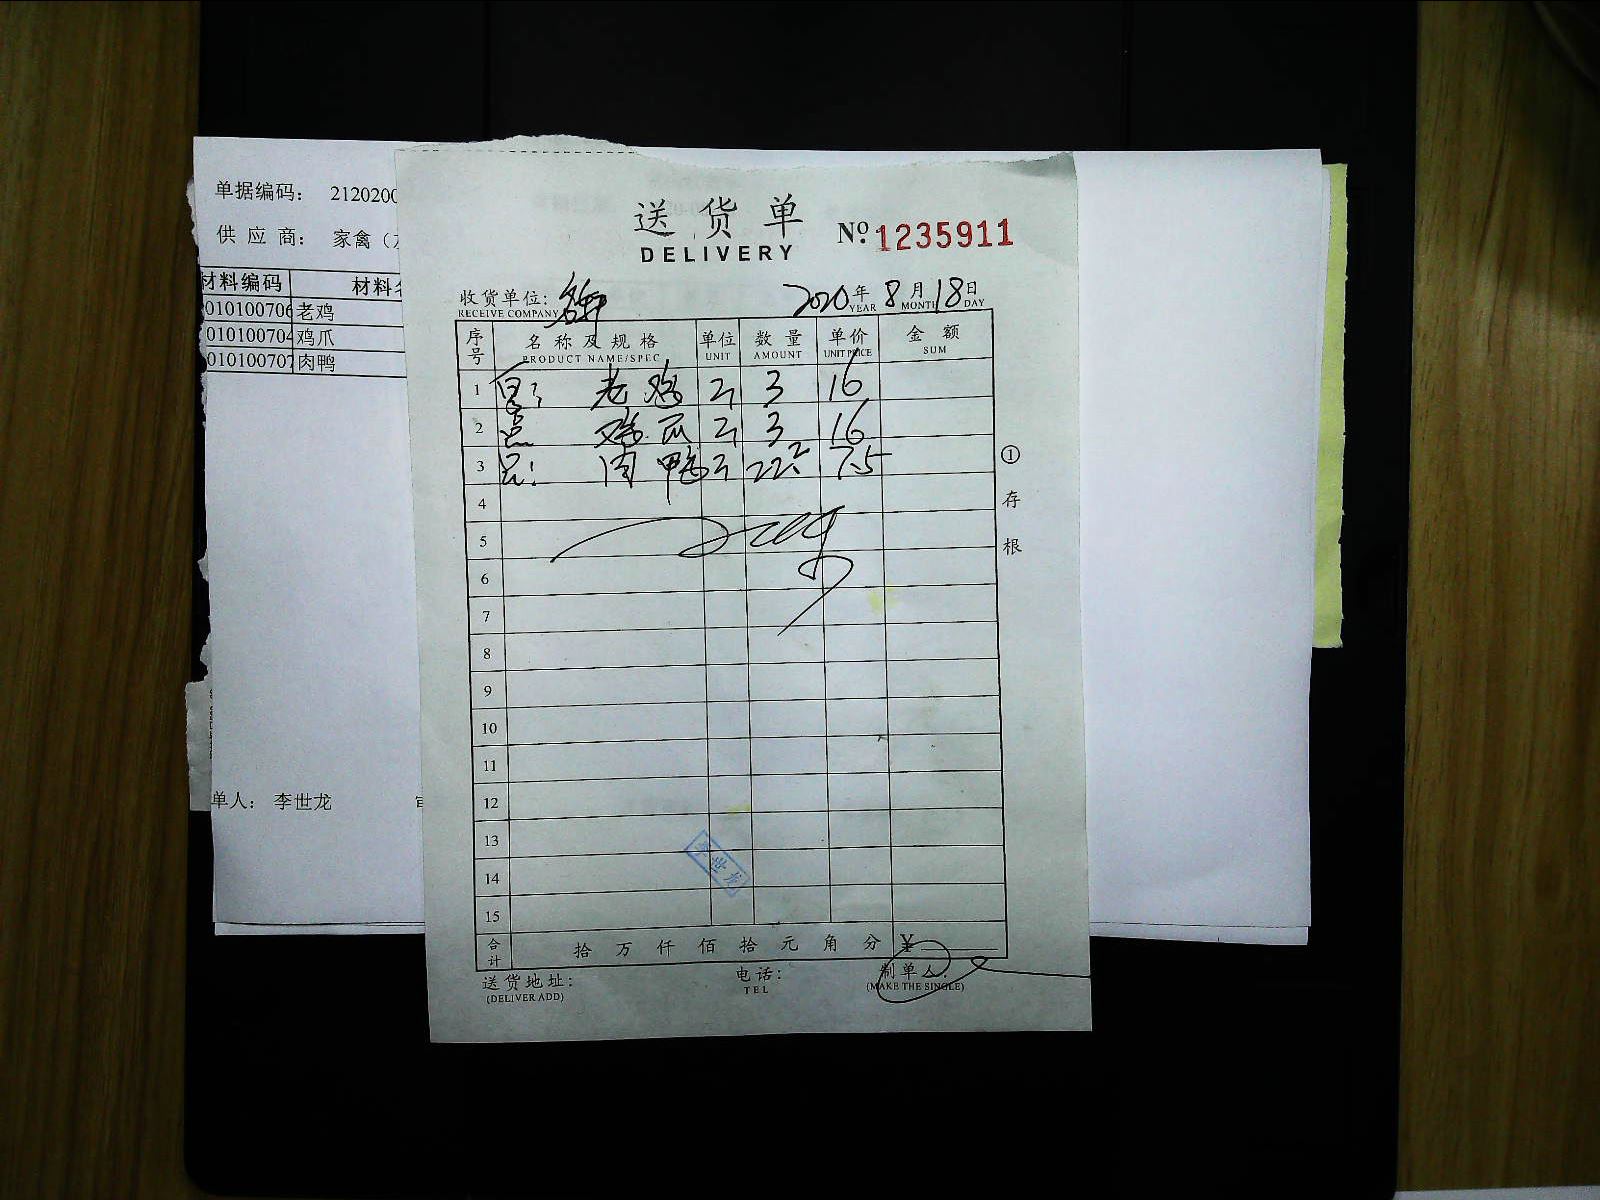 单据编码： 2120200
供 应 商： 家禽（
材料编码 材料名
010100706 老鸡
010100704 鸡爪
010100707 肉鸭
单人： 李世龙
送 货 单
DELIVERY
№ 1235911
收货单位:
RECEIVE COMPANY
2020 年 8 月 18 日
YEAR MONTH DAY
序号 名 称 及 规 格 单位 数 量 单价 金 额
PRODUCT NAME/SPEC UNIT AMOUNT UNIT PRICE SUM
1 老鸡 斤 3 16
2 点 鸡爪 斤 3 16
3 肉鸭 斤 22.2 7.5
4
5
6
7
8
9
10
11
12
13
14
15
① 存 根
李世龙
合计 拾 万 仟 佰 拾 元 角 分 ¥
送货地址: 电话: 制单人:
(DELIVER ADD) TEL (MAKE THE SINGLE)